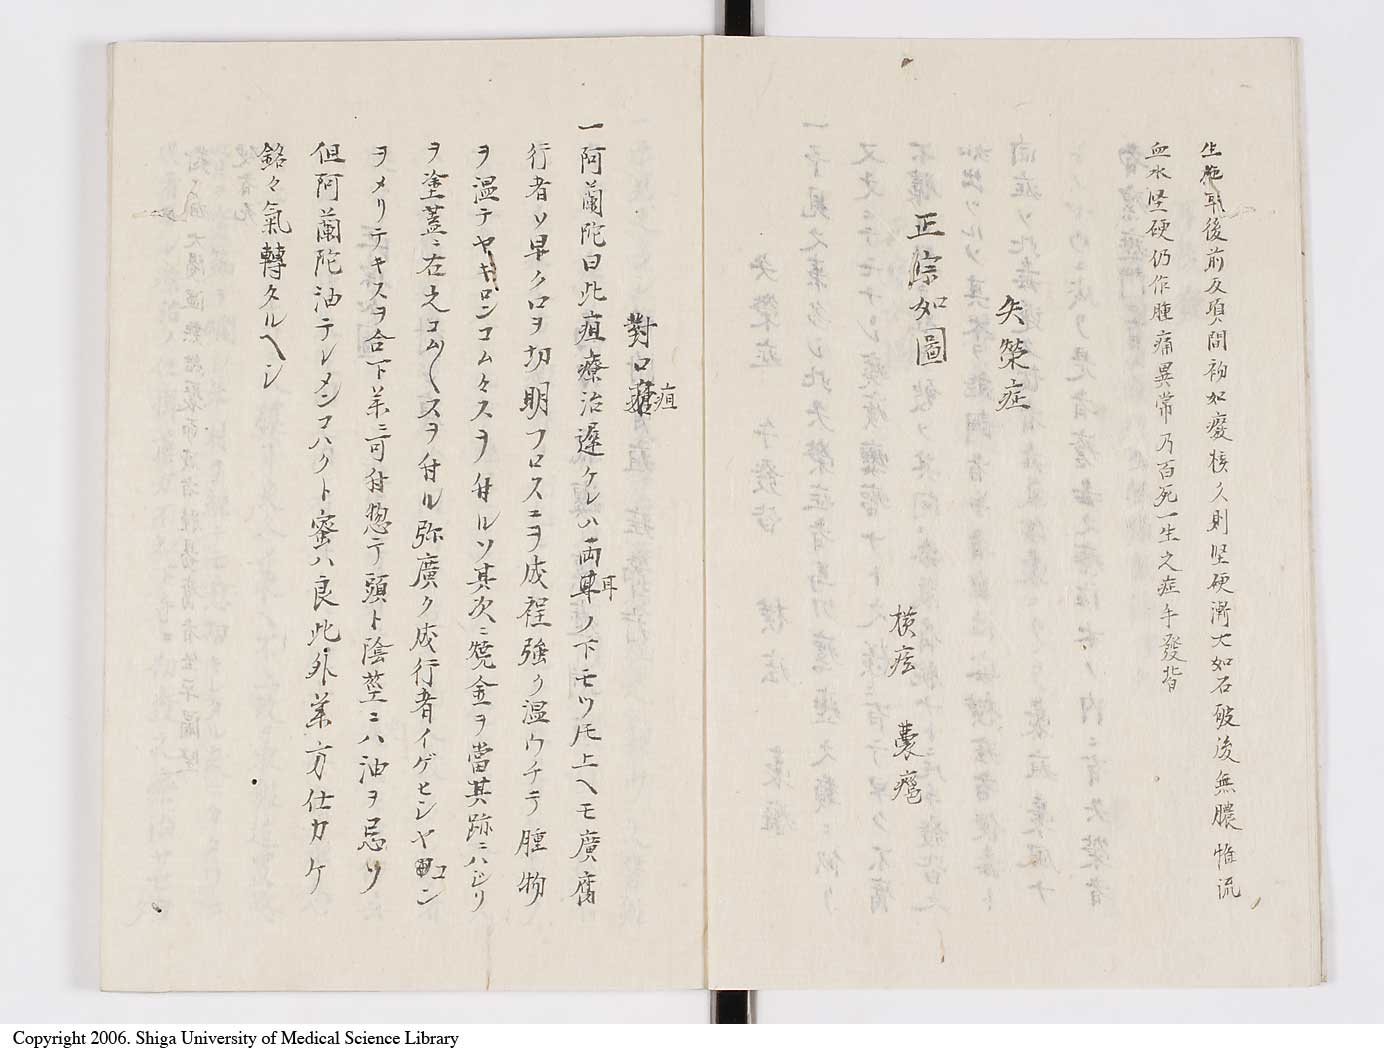 生施耳後前及項間初如痰核久則堅硬漸大如石破後無膿惟流
血水堅硬仍作腫痛異常乃百死一生之症手發背
失榮症
正宗如圖
横痃
囊癰
對口疽
一阿蘭陀曰此疽療治遅ケレハ両耳ノ下モツ凥上ヘモ廣腐
行者ソ早ク口ヲ切明フロスコヲ成程強ク温ウチテ腫物
ヲ温テヤキロンコム々スヲ付ルソ其次ニ焼金ヲ當其跡ニハジリ
ヲ塗蓋ニ右之コム〱スヲ付ル弥廣ク成行者イゲヒシヤコン
ヲメリテキスヲ合下薬ニ可付惣テ頭ト陰茎ニハ油ヲ忌ソ
但阿蘭陀油テレメンコハクト蜜ハ良此外薬方仕カケ
銘々氣轉タルヘシ
Copyright 2006. Shiga University of Medical Science Library